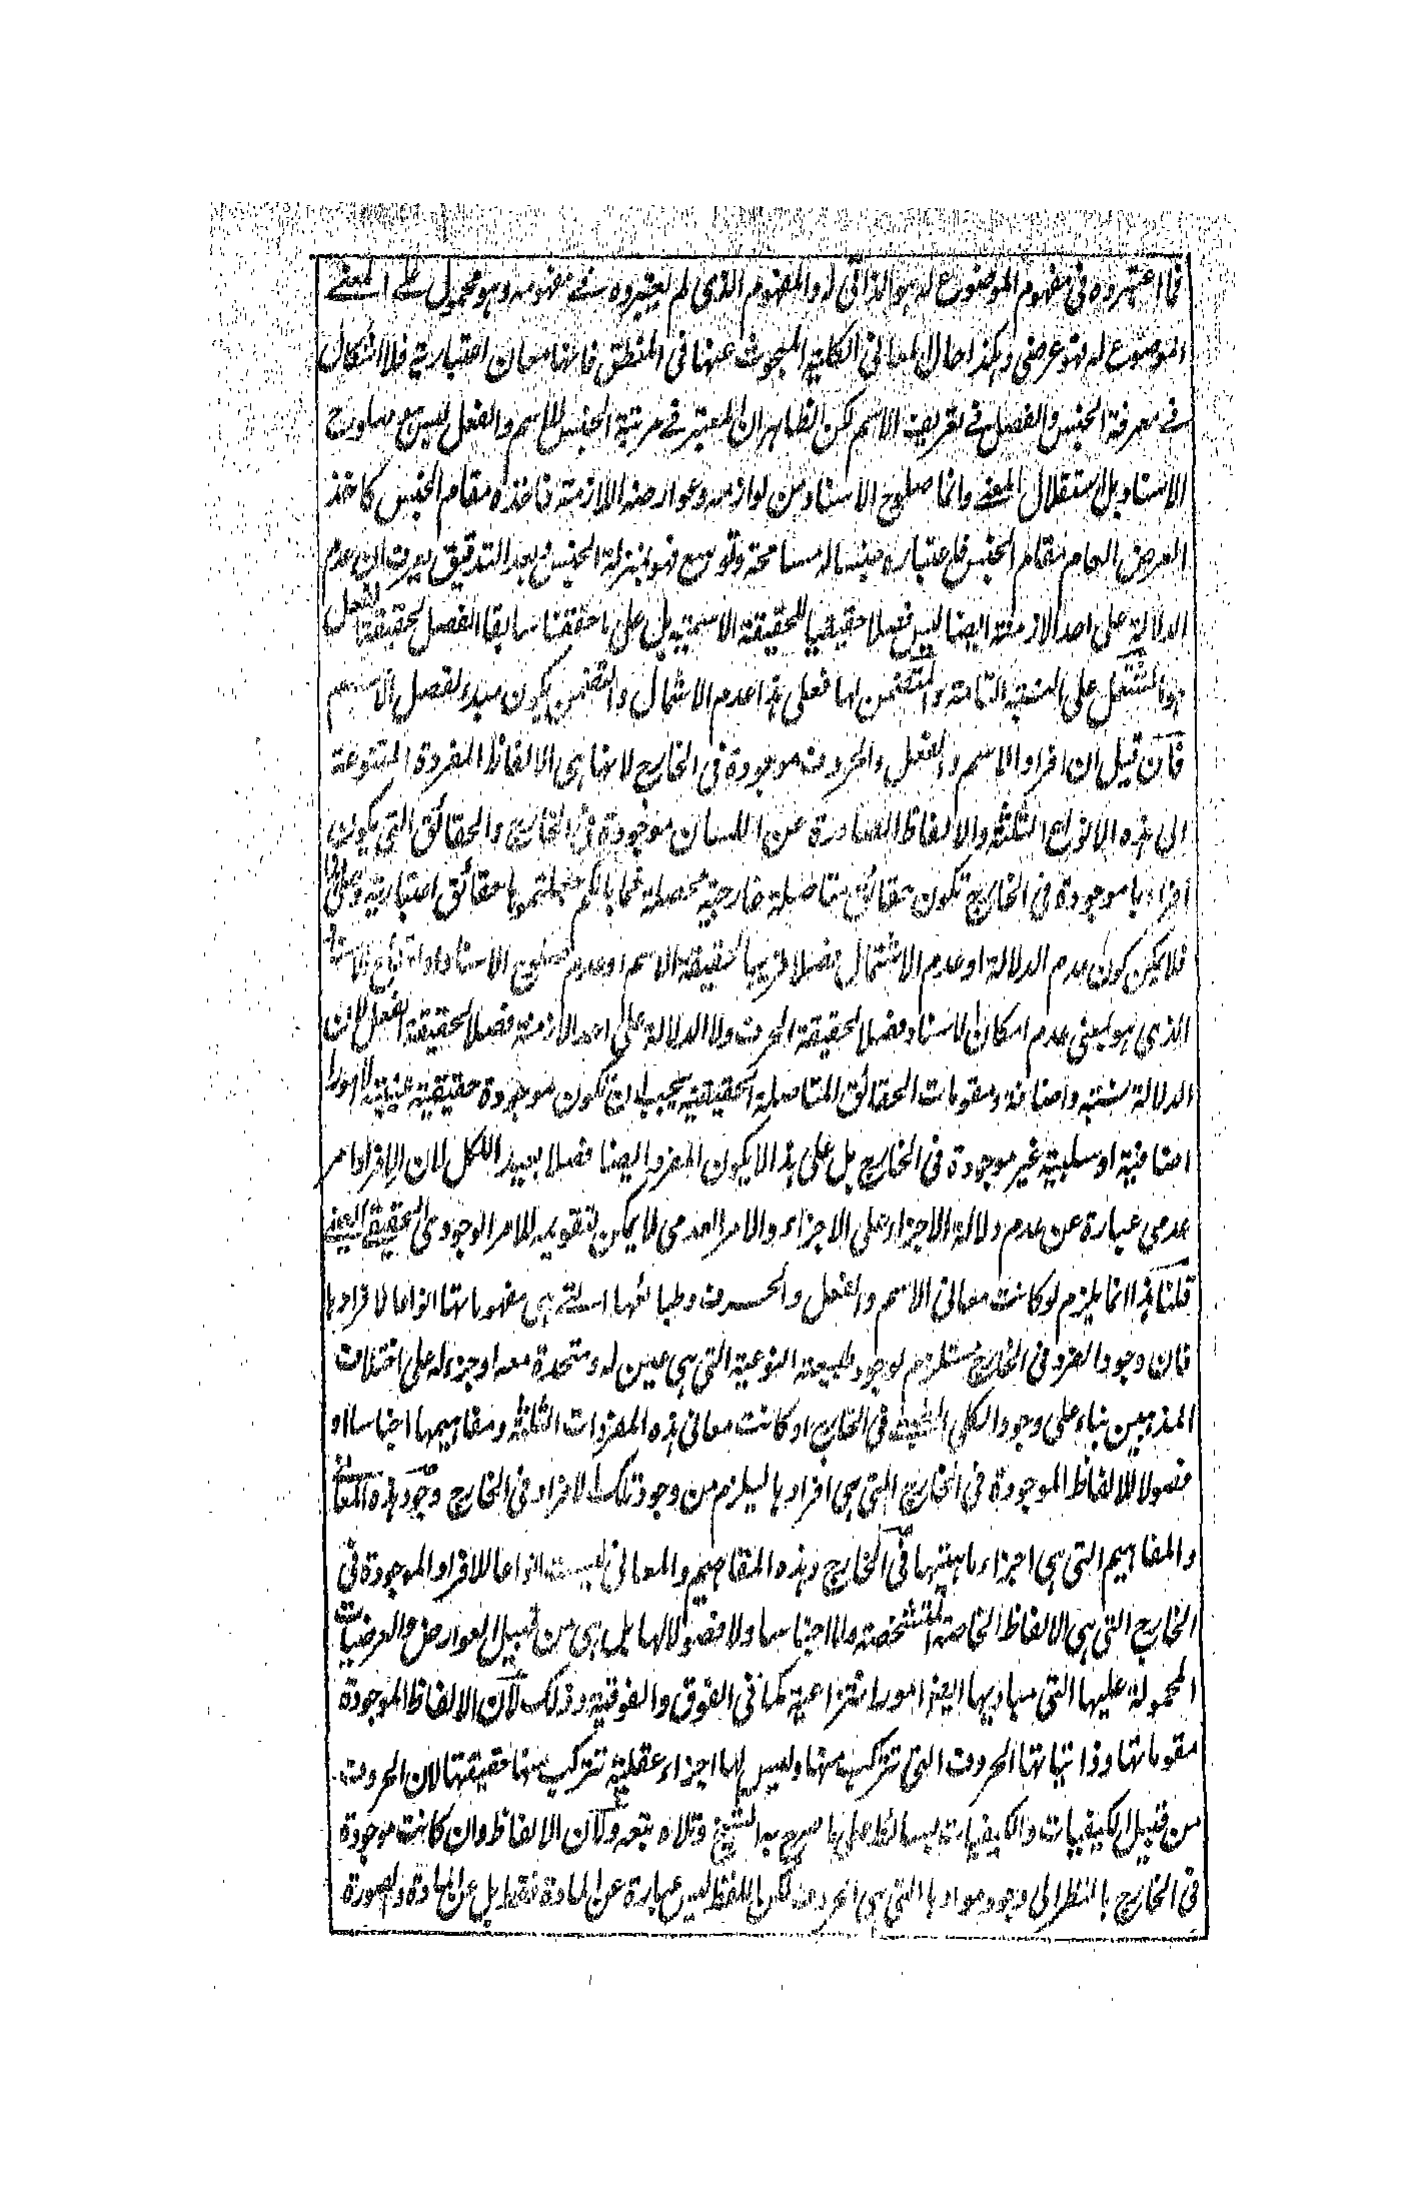 فما اعتبروه فى مفهوم الموضوع له هو الذاتى له والمفهوم الذى لم يعتبروه فے مفهومه وهو محمول علے المعنے
الموضوع له فهو عرضى وهكذا حال المعانى الكلية المبحوث عنها فى المنطق فانها معان اعتبارية فلا اشكال
فے معرفة الجنس والفصل فے تعريف الاسم لكن الظاهر ان المعتبر فے مرتبة الجنس للاسم والفعل ليس هو صلوح
الاسناد بل استقلال المعنے وانما صلوح الاسناد من لوازمه وعوارضه اللازمة فاخذه مقام الجنس كاخذ
العرض العام مقام الجنس فاعتباره جنسا له مسامحة وتوسع فهو بمنزلة الجنس وبعد التدقيق يعرف ان عدم
الدلالة على احد الازمنة ايضا ليس فصلا حقيقيا للحقيقة الاسمية بل على ما حققنا سابقا الفصل لحقيقة الفعل
هو المشتمل على النسبة التامة والمتضمن لها فعلى هذا عدم الاشتمال والتضمن يكون مبدء لفصل الاسم
فان قيل ان افراد الاسم والفعل والحروف موجودة فى الخارج لانها هى الالفاظ المفردة المتنوعة
الى هذه الانواع الثلثة والالفاظ الصادرة عن اللسان موجودة فى الخارج والحقائق التى يكون
افرادها موجودة فى الخارج تكون حقائق متاصلة خارجية محصلة فما بالكم جعلتموها حقائق اعتبارية
فلا يمكن كون عدم الدلالة او عدم الاشتمال فصلا قريبا لحقيقة الاسم او عدم صلوح الاسناد
الذى هو بمعنى عدم امكان الاسناد فصلا لحقيقة الحرف ولا الدلالة على احد الازمنة فصلا لحقيقة الفعل لان
الدلالة نسبة واضافة ومقومات الحقائق المتاصلة الحقيقية يجب ان تكون موجودة حقيقية عينية لا امورا
اضافية او سلبية غير موجودة فى الخارج بل على هذا لا يكون المفرد ايضا فصلا بعيدا للكل لان الافراد امر
عدمى عبارة عن عدم دلالة الاجزاء على الاجزاء والامر العدمى لا يمكن تقويمه للامر الوجودى الحقيقے العينے
قلنا هذا انما يلزم لو كانت معانى الاسم والفعل والحرف وطبائعها التے هى مفهوماتها انواعا لافرادها
فان وجود الفرد فى الخارج مستلزم لوجود طبيعته النوعية التى هى عين له ومتحدة معه او جزء له على اختلاف
المذهبين بناء على وجود الكلى الطبيعے فى الخارج او كانت معانى هذه المفردات الثلثة ومفاهيمها اجناسا او
فصولا للالفاظ الموجودة فى الخارج التى هى افرادها ليلزم من وجود تلك الافراد فى الخارج وجود هذه المعانى
والمفاهيم التى هى اجزاء ماهيتها فى الخارج وهذه المفاهيم والمعانى ليست انواعا للافراد الموجودة فى
الخارج التى هى الالفاظ الخاصة المتشخصة ولا اجناسا ولا فصولا لها بل هى من قبيل العوارض والعرضيات
المحمولة عليها التى مباديها ايضا امورا انتزاعية كما فى الفوق والفوقية وذلك لان الالفاظ الموجودة
مقوماتها وذاتياتها الحروف التى تتركب منها وليس لها اجزاء عقلية تتركب منها حقيقتها لان الحروف
من قبيل الكيفيات والكيفيات بسائط على ما صرح به الشيخ وتلاه تبعه ولان الالفاظ وان كانت موجودة
فى الخارج بالنظر الى وجود موادها التى هى الحروف لكن اللفظ ليس عبارة عن المادة فقط بل عن المادة والصورة